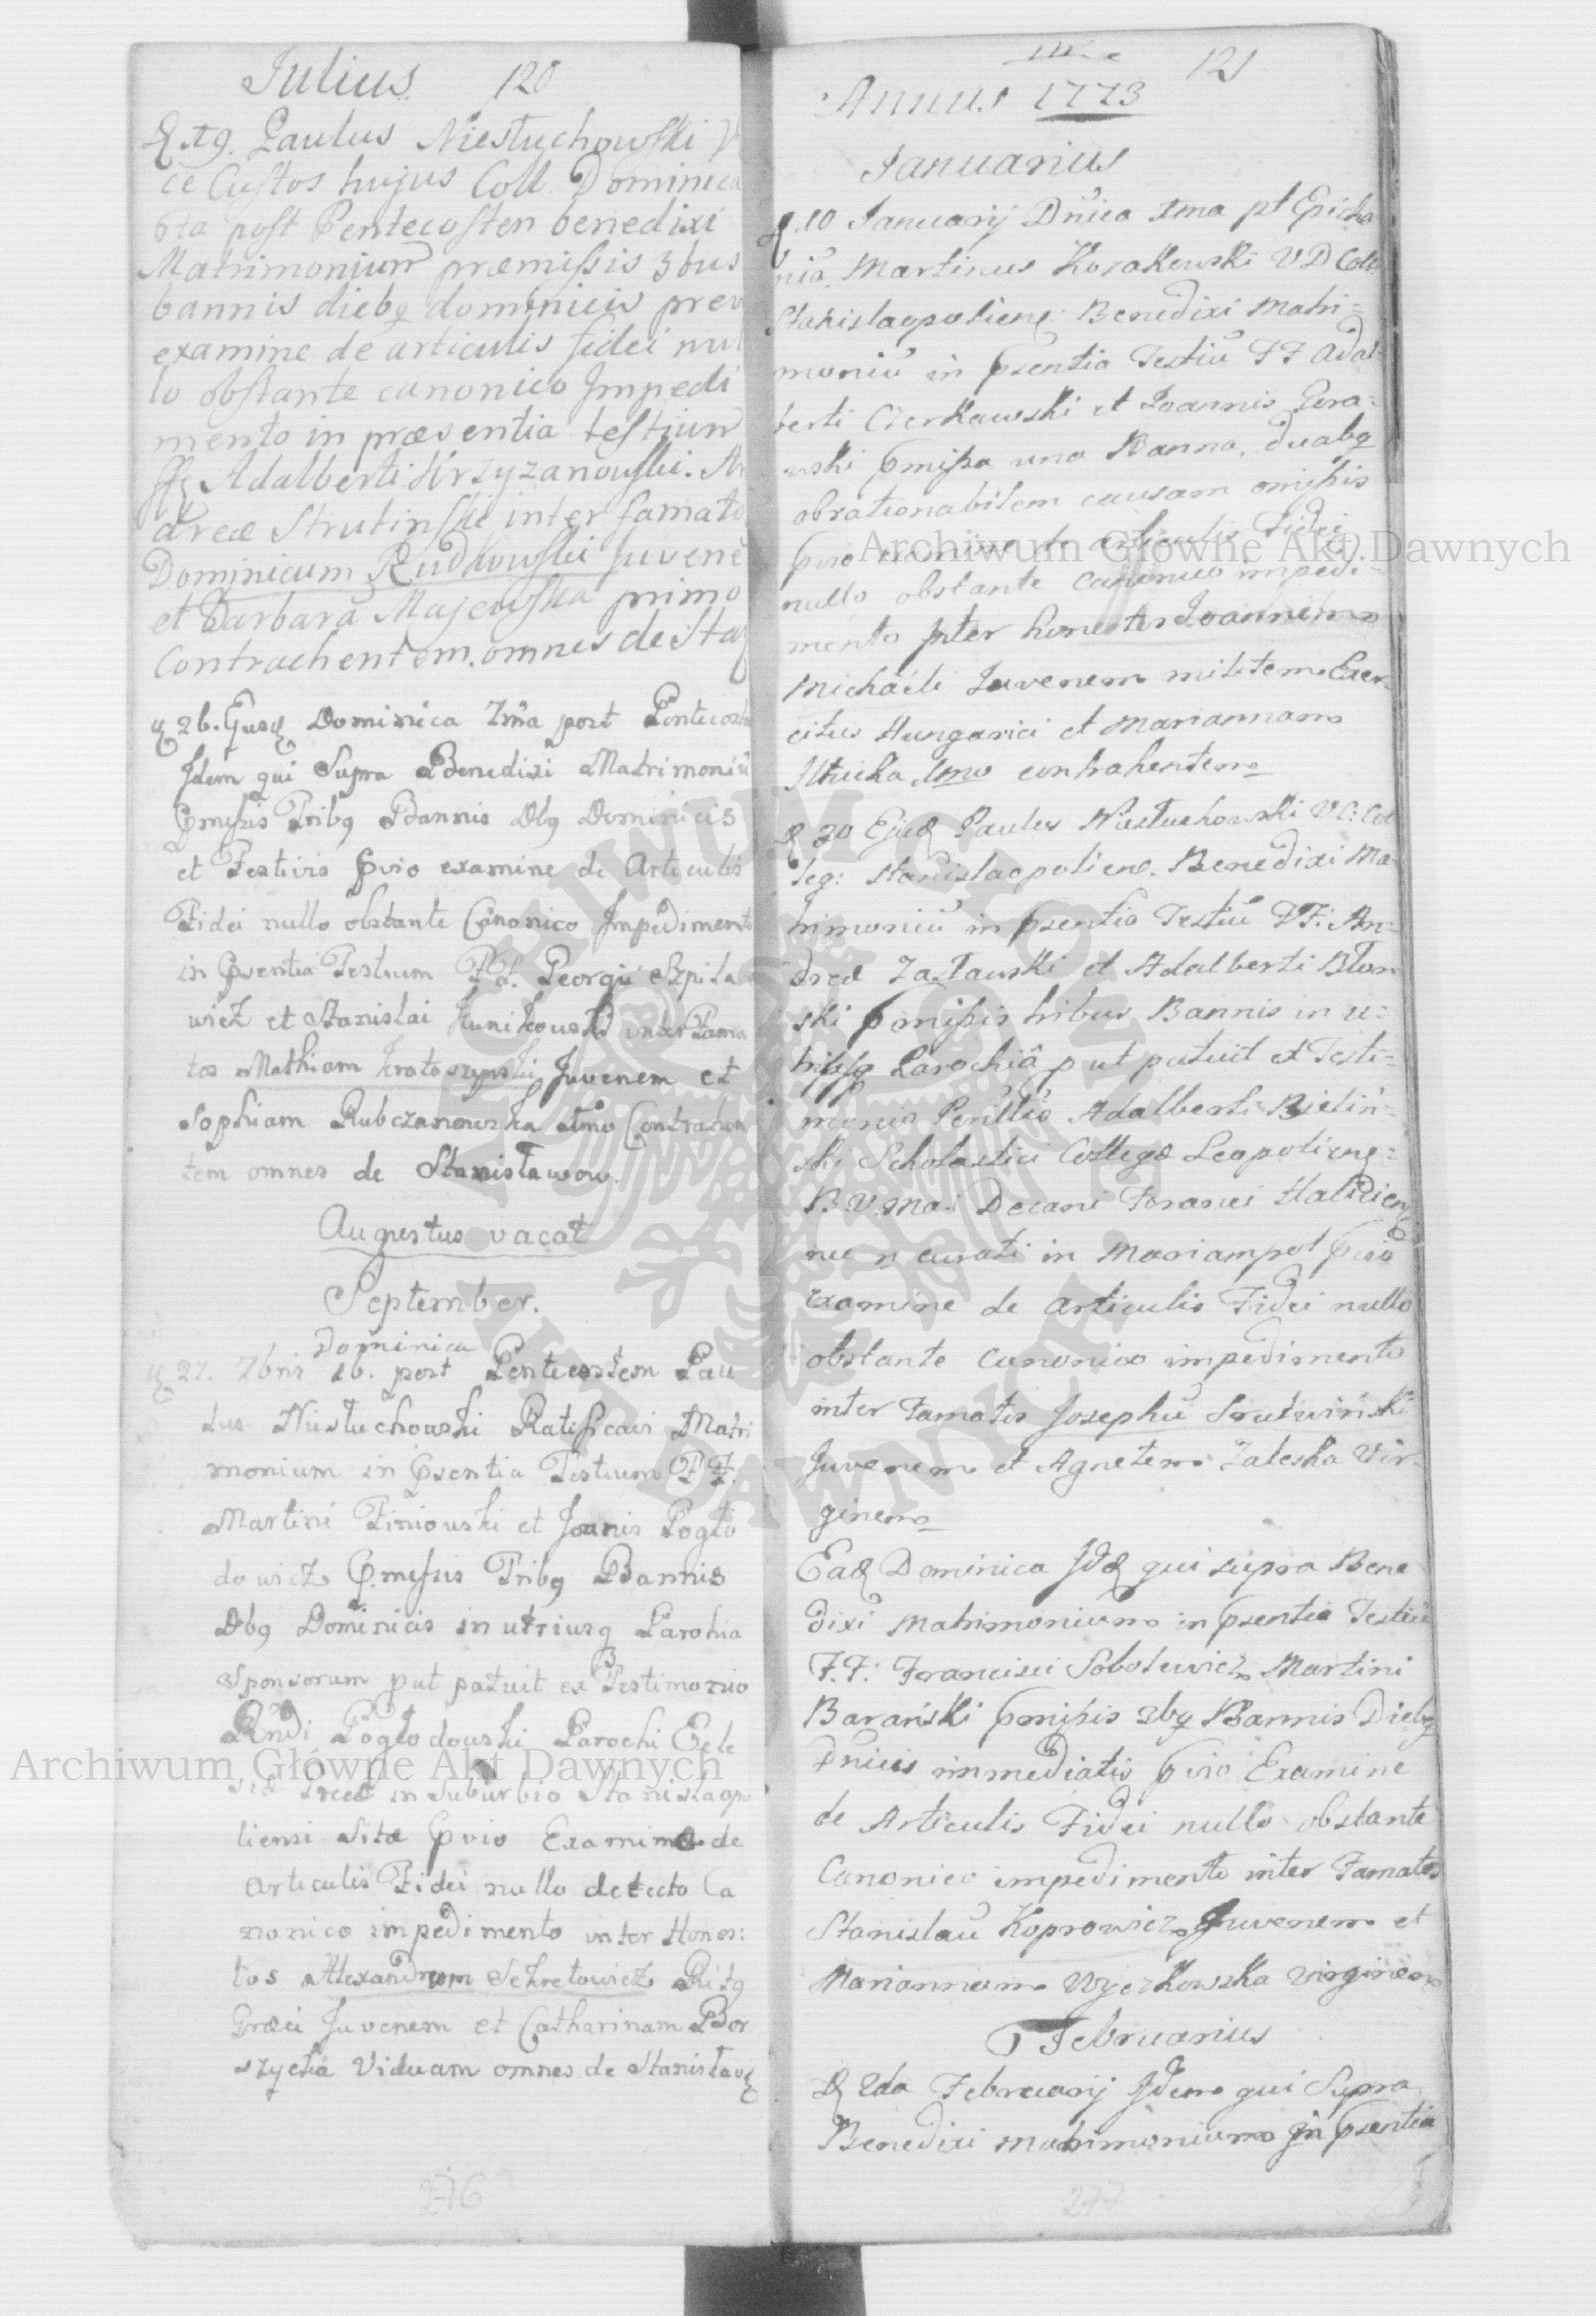 Julius. 120
19. Paulus Niestuchowski V
ce Custos hujus Coll. Dominica
6ta post Pentecosten benedixi
Matrimonium præmissis 3bus
bannis diebq dominicis prev
examine de articulis fidei nul
lo obstante canonico Impedi
mento in præsentia testium
ff Adalberti Krzyzanowski. An
dreæ Strutinski inter famato
Dominicum Rudkowski juvenē
et Barbarā Majewska primo
Contrahentem. omnes de Sta
26. Ejusd Dominica 7ma post Pentecoste
Idem qui Supra Benedixi Matrimoniū
Pmissis Tribq Bannis Dbq Dominicis
et Festivis Pvio examine de Articulis
Fidei nullo obstante Canonico Impedimento
in Psentia Testium FF. Georgii Szpila
wicz et Stanislai Kunikowski inter Fama
tos Mathiam Kratoszynski Juvenem et
Sophiam Rubczanowska 1mo Contrahen
tem omnes de Stanisławow.
Augustus vacat
September.
Dominica
27. 7bris 16. post Pentecostem Pau
lus Niestuchowski Ratificavi Matri
monium in Psentia Testium FF.
Martini Finiowski et Joanis Pogło
dowicz Pmissis Tribq Bannis
Dbq Dominicis in utriusq Parohia
Sponsorum put patuit ex Testimonio
Rndi Pogłodowski Parochi Ecle
siæ Græcæ in Suburbio Stanislaopo
liensi Sitæ Pvio Examine de
Articulis Fidei nullo detecto Ca
nonico impedimento inter Hones:
tos Alexandrum Sekretowicz Ritq
Græci Juvenem et Catharinam Bor
szycka Viduam omnes de Stanislaw
276
121
Annus 1773
Januarius
10 Januarij Dnica 1ma pt Epipha
nia, Martinus Kozakowski V D Coll
Stanislaopoliene Benedixi Matri=
moniū in Psentia Testiū FF Adal=
berti Czerkawski et Joannis Gora=
wski Pmissa una Banna, duabq
obrationabilem causam omissis
Pvio examine de articulis Fidei
nullo obstante canonico impedi=
mento Inter honestos Joannem
Michaeli Juvenem militem Exer=
citus Hungarici et Mariannam
1mo contrahentem
30 Ejusd Paulus Niestuchowski VC: Col
leg: Stanislaopoliene. Benedixi Ma
trimoniū in Psentia Testiū FF: An=
dreæ Zasławski et Adalberti Błon
ski Pmissis tribus Bannis in u=
triusq Parochiâ put patuit ex Testi=
monio Adalberti Bielin=
ski Scholastici Collegæ Leopoliene:
B. V. Ma: Decani Foranei Halicien
nec n curati in Mariampol Pvio
examine de Articulis Fidei nullo
obstante canonico impedimento
inter Famatos Josephū Srutwinski
Juvenem et Agnetem Zaleska Vir=
ginem
Ead Dominica Id qui supra Bene
dixi Matrimonium in Psentia Testiū
F.F: Francisci Sobolewicz Martini
Barański Pmissis 3bq Bannis Diebq
Dnicis immediatis Pvio Examine
de Articulis Fidei nullo obstante
Canonico impedimento inter Famatos
Stanislaū Koprowicz Juvenem et
Mariannam Wyczkowska virginem
Februarius
2da Februarij Idem qui Supra
Benedixi matrimonium in Psentia
277
Archiwum Główne Akt Dawnych
Archiwum Główne Akt Dawnych
ARCHIWUM GŁÓWNE AKT DAWNYCH